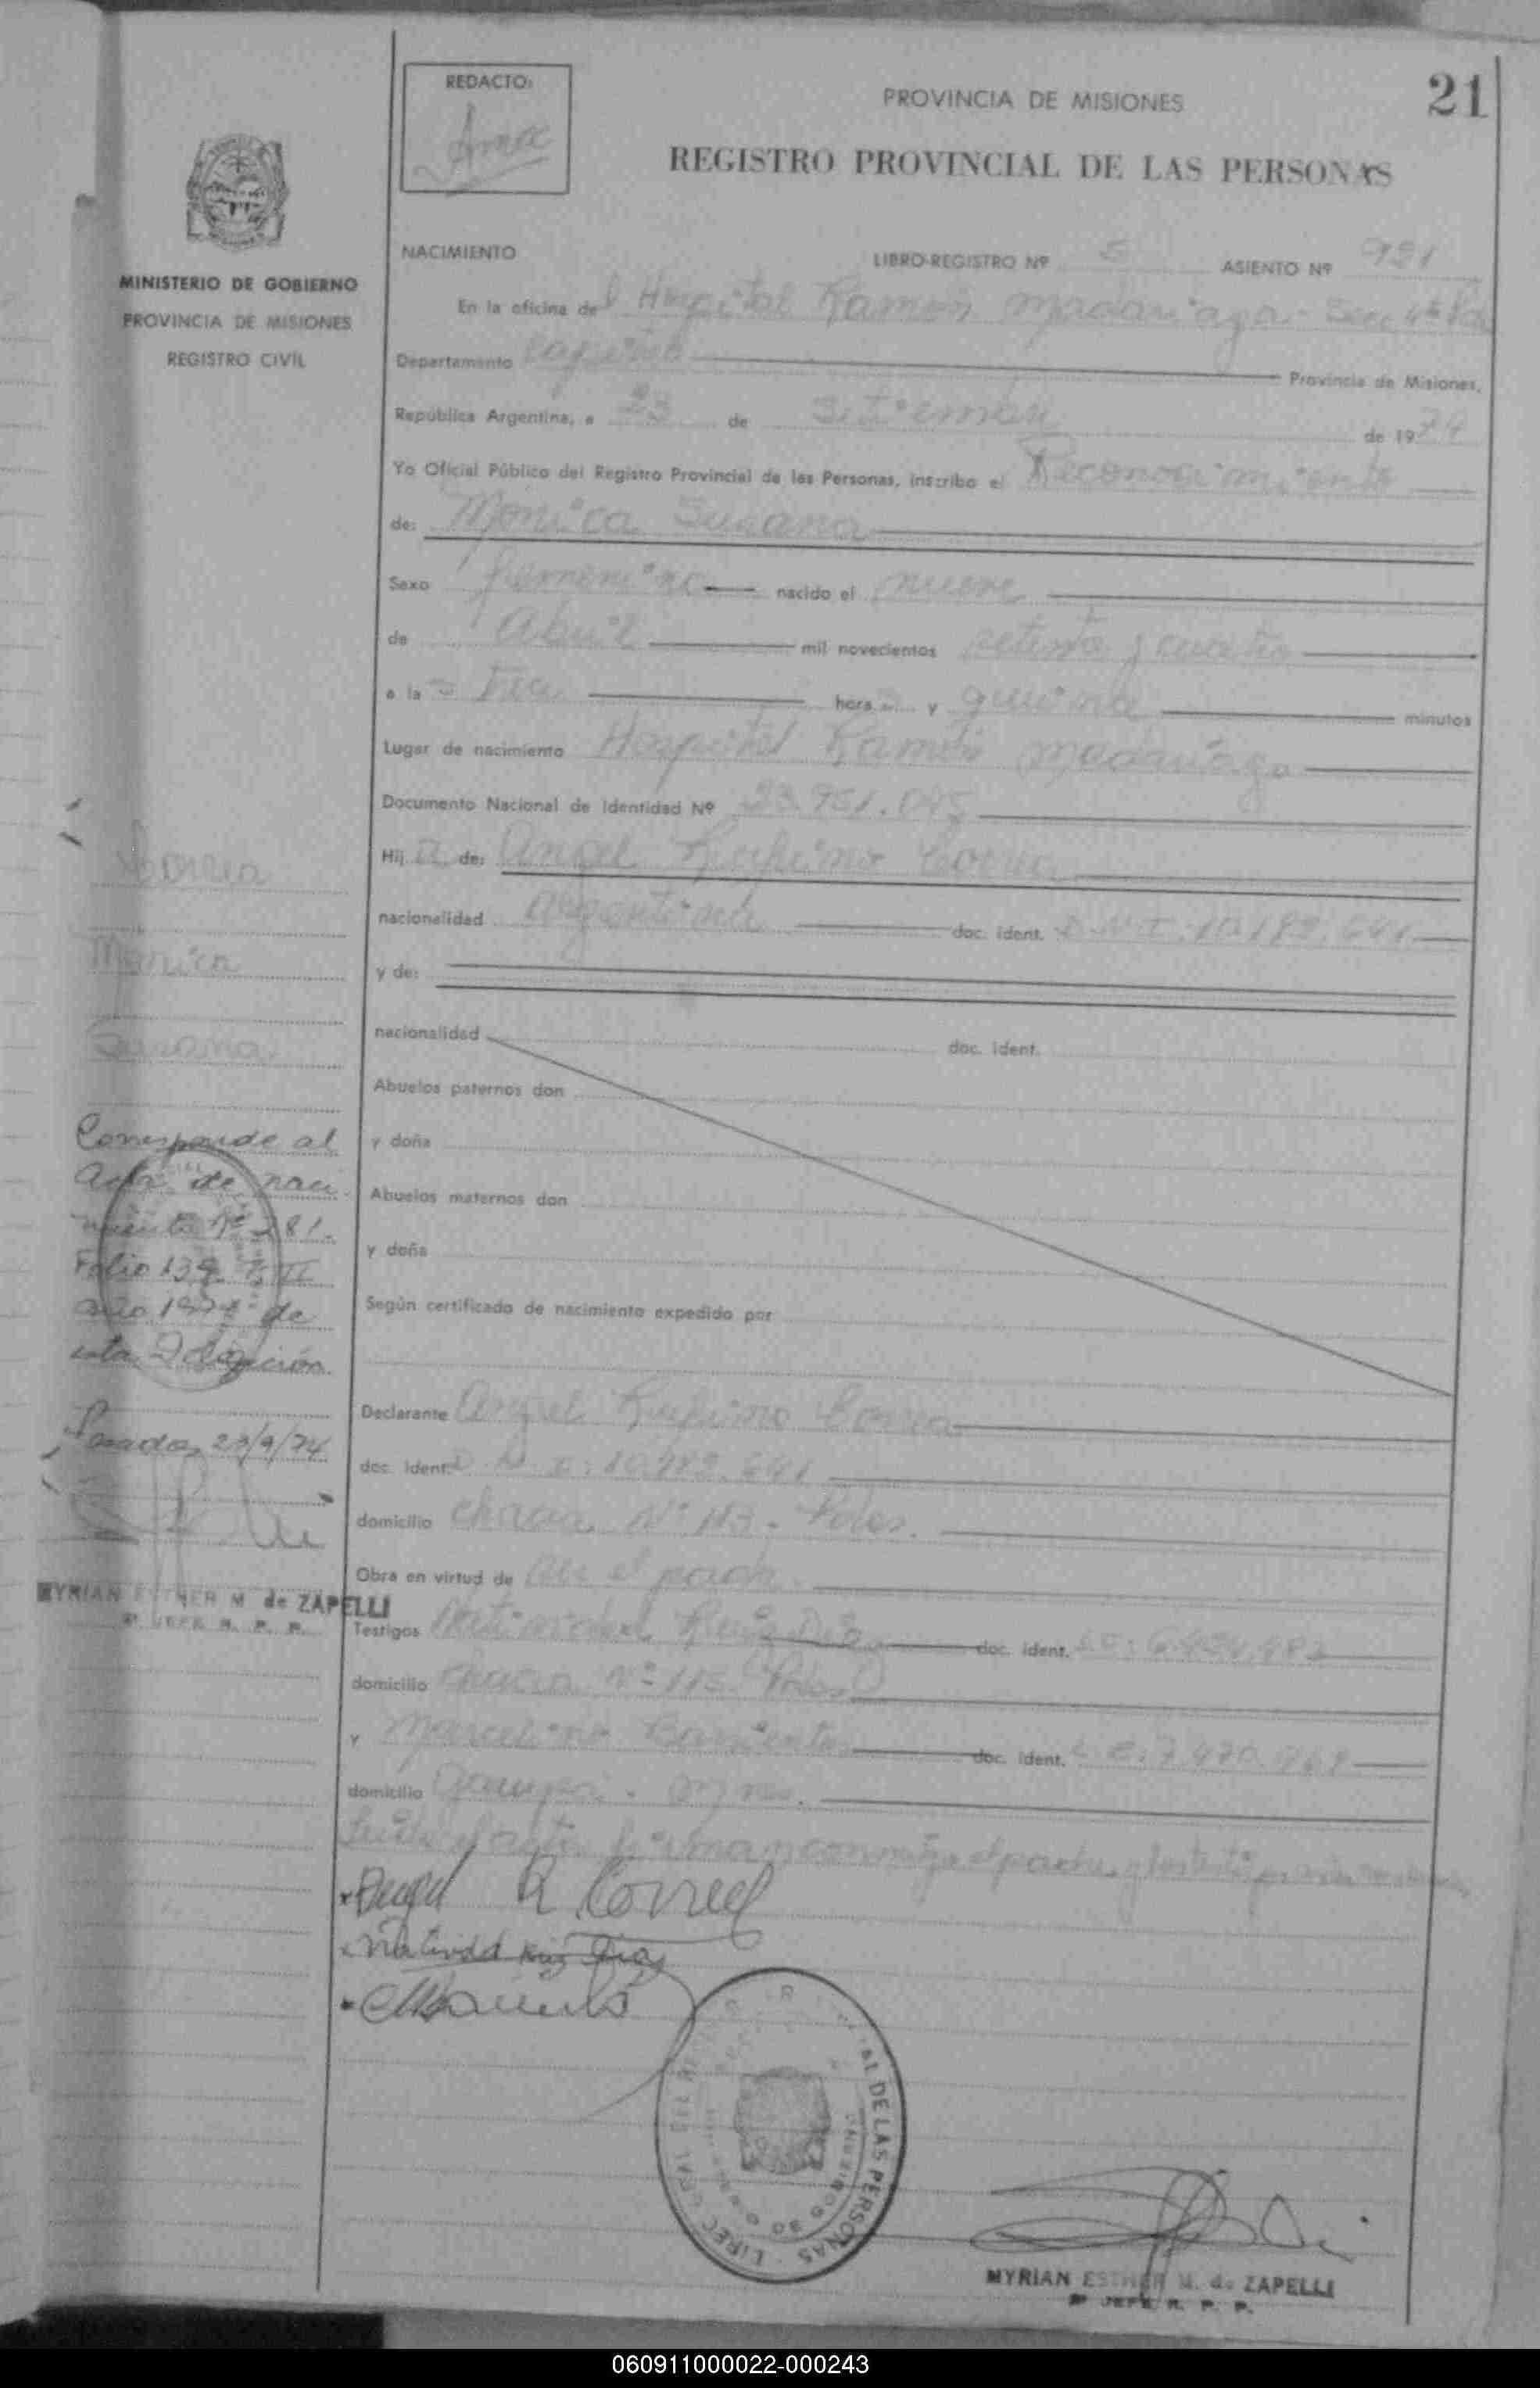 21
REDACTO:
PROVINCIA DE MISIONES
REGISTRO PROVINCIAL DE LAS PERSONAS
MINISTERIO DE GOBIERNO
PROVINCIA DE MISIONES
REGISTRO CIVIL
NACIMIENTO LIBRO-REGISTRO Nº 5 ASIENTO Nº 921
En la oficina del Hospital Ramón Madariaga - Sec 4ª
Departamento Capital Provincia de Misiones,
República Argentina, a 23 de Setiembre de 1974
Yo Oficial Público del Registro Provincial de las Personas, inscribo el Reconocimiento
de: Monica Susana
Sexo femenino nacido el nueve
de Abril mil novecientos setenta y cuatro
a las Tres horas y quince minutos
Lugar de nacimiento Hospital Ramón Madariaga
Documento Nacional de Identidad Nº 23.951.045
Hija de: Angel Rufino Correa
nacionalidad argentina doc. ident. D.N.I.
y de:
nacionalidad doc. ident.
Abuelos paternos don
y doña
Abuelos maternos don
y doña
Según certificado de nacimiento expedido por
Declarante Angel Rufino Correa
doc. ident. D.N.I.
domicilio chacra Nº 113 - Pdas.
Obra en virtud de ser el padre.
Testigos Natividad Ruiz Diaz doc. ident.
domicilio chacra Nº 115 Pdas
y Marcelino Barrientos doc. ident. L.E. 7.470.
domicilio Garupá - Mnes.
Leída el acta firman conmigo el padre y los testigos
Angel R Correa
Natividd Ruiz Diaz
Correa
Monica
Susana
Corresponde al
acta de naci
miento Nº 281.
Folio 139 Tº II
año 1974 de
esta Delegación
Posadas, 23/9/74
MYRIAN ESTHER M. de ZAPELLI
JEFE R. P. P.
DE LAS PERSONAS
MYRIAN ESTHER M. de ZAPELLI
JEFE R. P. P.
060911000022-000243